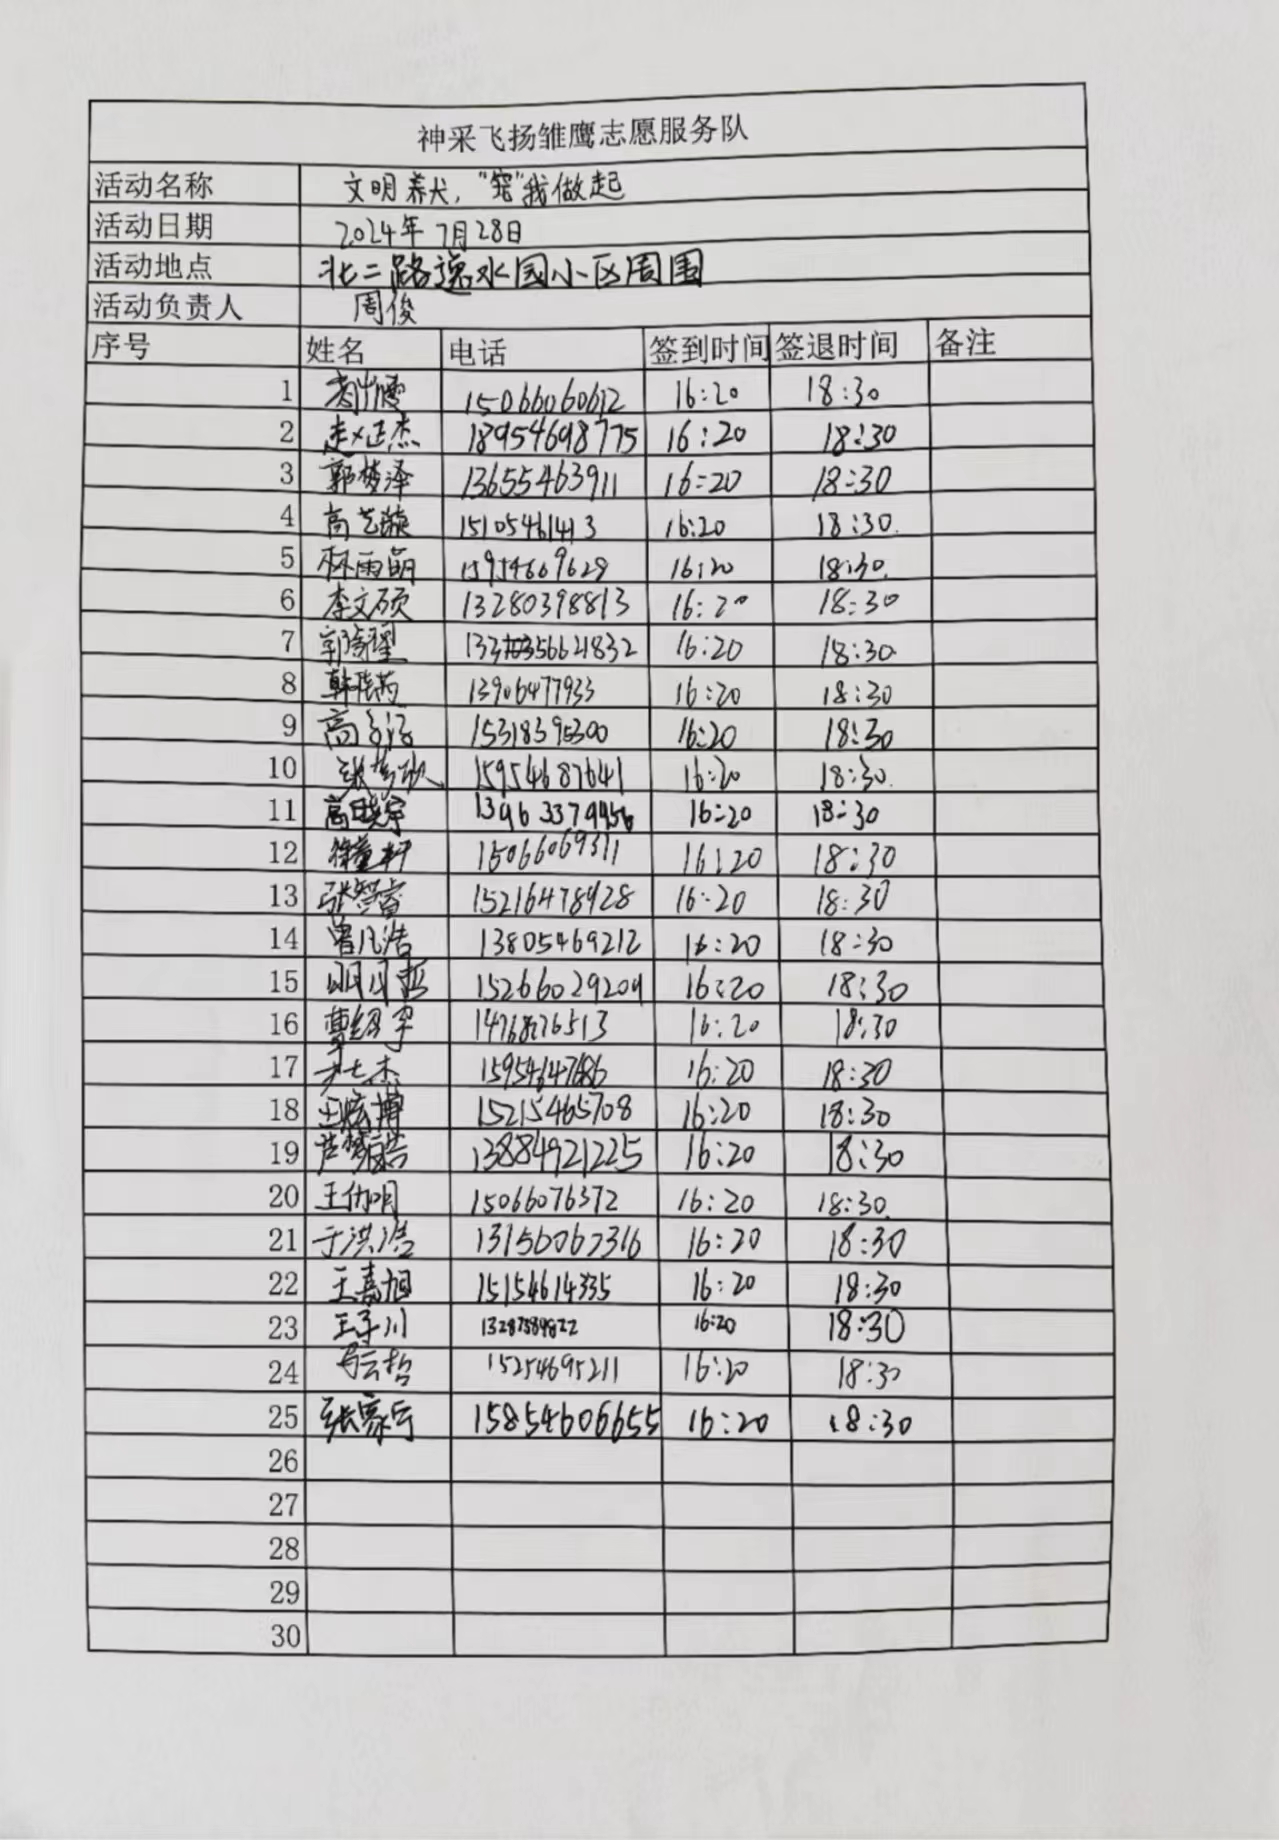 神采飞扬雏鹰志愿服务队
活动名称 文明养犬，"宠"我做起
活动日期 2024年7月28日
活动地点 北二路逸水园小区周围
活动负责人 周俊
序号 姓名 电话 签到时间 签退时间 备注
1 15066060612 16:20 18:30
2 赵正杰 18954698775 16:20 18:30
3 郭梦泽 13655463911 16:20 18:30
4 高艺璇 15105461413 16:20 18:30
5 林雨萌 15954669628 16:20 18:30
6 李文硕 13280398813 16:20 18:30
7 16:20 18:30
8 13906477933 16:20 18:30
9 15318395300 16:20 18:30
10 15954687641 16:20 18:30
11 高晓宇 16:20 18:30
12 徐童轩 15066069311 16:20 18:30
13 张智睿 15216478928 16:20 18:30
14 曾凡浩 13805469212 16:20 18:30
15 明月哲 15266029204 16:20 18:30
16 16:20 18:30
17 16:20 18:30
18 15215465708 16:20 18:30
19 13884921225 16:20 18:30
20 15066076372 16:20 18:30
21 于洪浩 13156067316 16:20 18:30
22 王嘉旭 15154614335 16:20 18:30
23 王子川 13287389822 16:20 18:30
24 15254695211 16:20 18:30
25 张家兵 15854606655 16:20 18:30
26
27
28
29
30